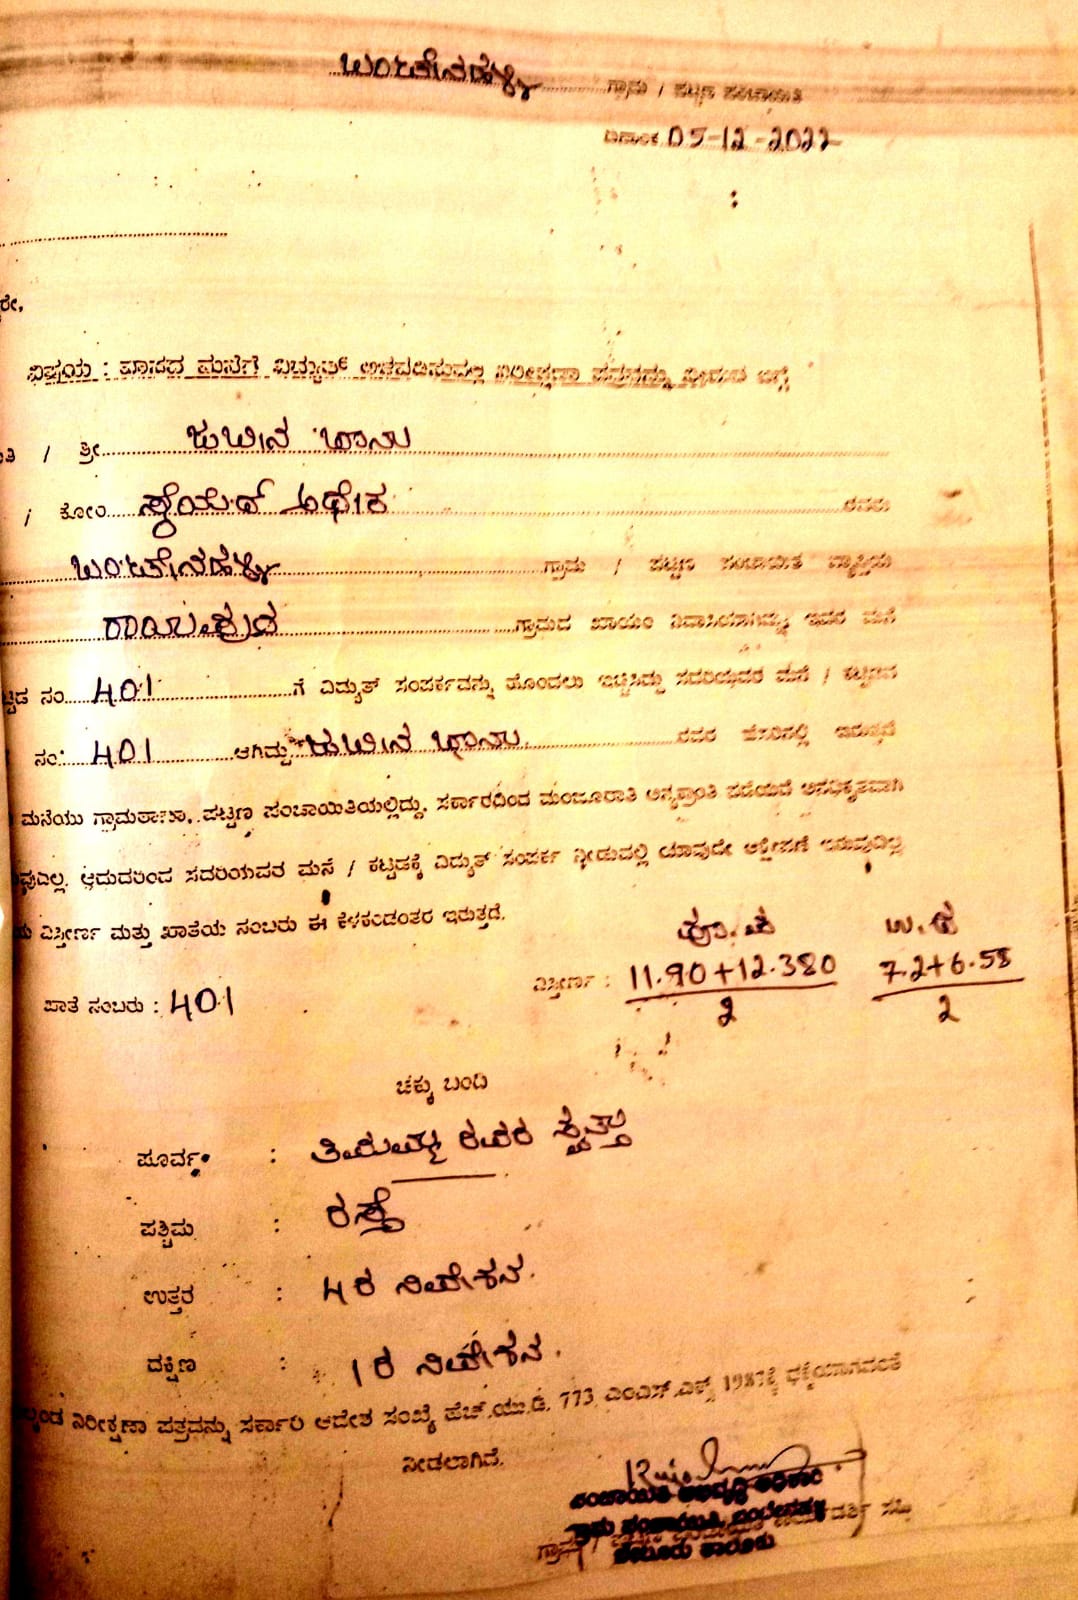 ಬಂಟೇನಹಳ್ಳಿ ಗ್ರಾಮ / ಪಟ್ಟಣ ಪಂಚಾಯಿತಿ
ದಿನಾಂಕ 05-12-2022
ರೇ,
ವಿಷಯ : ವಾಸದ ಮನೆಗೆ ವಿದ್ಯುತ್ ಅಳವಡಿಸುವಲ್ಲಿ ನಿರೀಕ್ಷಣಾ ಪತ್ರವನ್ನು ನೀಡುವ ಬಗ್ಗೆ
ತಿ / ಶ್ರೀ ಜುಬೀನ ಖಾನು
/ ಕೋಂ ಸೈಯದ್ ರವರು
ಬಂಟೇನಹಳ್ಳಿ ಗ್ರಾಮ / ಪಟ್ಟಣ ಪಂಚಾಯಿತಿ ವ್ಯಾಪ್ತಿಯ
ರಾಯಪುರ ಗ್ರಾಮದ ಖಾಯಂ ನಿವಾಸಿಯಾಗಿದ್ದು ಇವರ ಮನೆ
ಟ್ಟಡ ನಂ 401 ಗೆ ವಿದ್ಯುತ್ ಸಂಪರ್ಕವನ್ನು ಹೊಂದಲು ಇಚ್ಛಿಸಿದ್ದು ಸದರಿಯವರ ಮನೆ / ಕಟ್ಟಡದ
ನಂ: 401 ಆಗಿದ್ದು ಜುಬೀನ ಖಾನು ರವರ ಹೆಸರಿನಲ್ಲಿ ಇರುತ್ತದೆ
ಮನೆಯು ಗ್ರಾಮಠಾಣಾ, ಪಟ್ಟಣ ಪಂಚಾಯಿತಿಯಲ್ಲಿದ್ದು, ಸರ್ಕಾರದಿಂದ ಮಂಜೂರಾತಿ ಅನ್ಯಕ್ರಾಂತಿ ಪಡೆಯದೆ ಅನಧಿಕೃತವಾಗಿ
ವುದಿಲ್ಲ. ಆದುದರಿಂದ ಸದರಿಯವರ ಮನೆ / ಕಟ್ಟಡಕ್ಕೆ ವಿದ್ಯುತ್ ಸಂಪರ್ಕ ನೀಡುವಲ್ಲಿ ಯಾವುದೇ ಆಕ್ಷೇಪಣೆ ಇರುವುದಿಲ್ಲ
ಯ ವಿಸ್ತೀರ್ಣ ಮತ್ತು ಖಾತೆಯ ನಂಬರು ಈ ಕೆಳಕಂಡಂತರ ಇರುತ್ತದೆ.
ಪೂ.ಪ ಉ.ದ
ಖಾತೆ ನಂಬರು : 401 ವಿಸ್ತೀರ್ಣ : 11.90+12.380 7.2+6.58
2 2
ಚಕ್ಕು ಬಂದಿ
ಪೂರ್ವ : ತಿಮ್ಮಯ್ಯ ರವರ ಸ್ವತ್ತು
ಪಶ್ಚಿಮ : ರಸ್ತೆ
ಉತ್ತರ : 4ರ ನಿವೇಶನ.
ದಕ್ಷಿಣ : 1ರ ನಿವೇಶನ.
ಕಂಡ ನಿರೀಕ್ಷಣಾ ಪತ್ರವನ್ನು ಸರ್ಕಾರಿ ಆದೇಶ ಸಂಖ್ಯೆ ಹೆಚ್.ಯು.ಡಿ. 773 ಎಂಎನ್.ಎಕ್ಸ್ 1987ಕ್ಕೆ ಧಕ್ಕೆಯಾಗದಂತೆ
ನೀಡಲಾಗಿದೆ.
ಪಂಚಾಯಿತಿ ಅಭಿವೃದ್ಧಿ ಅಧಿಕಾರಿ
ಗ್ರಾಮ ಪಂಚಾಯಿತಿ, ಬಂಟೇನಹಳ್ಳಿ
ಬೇಲೂರು ತಾಲೂಕು